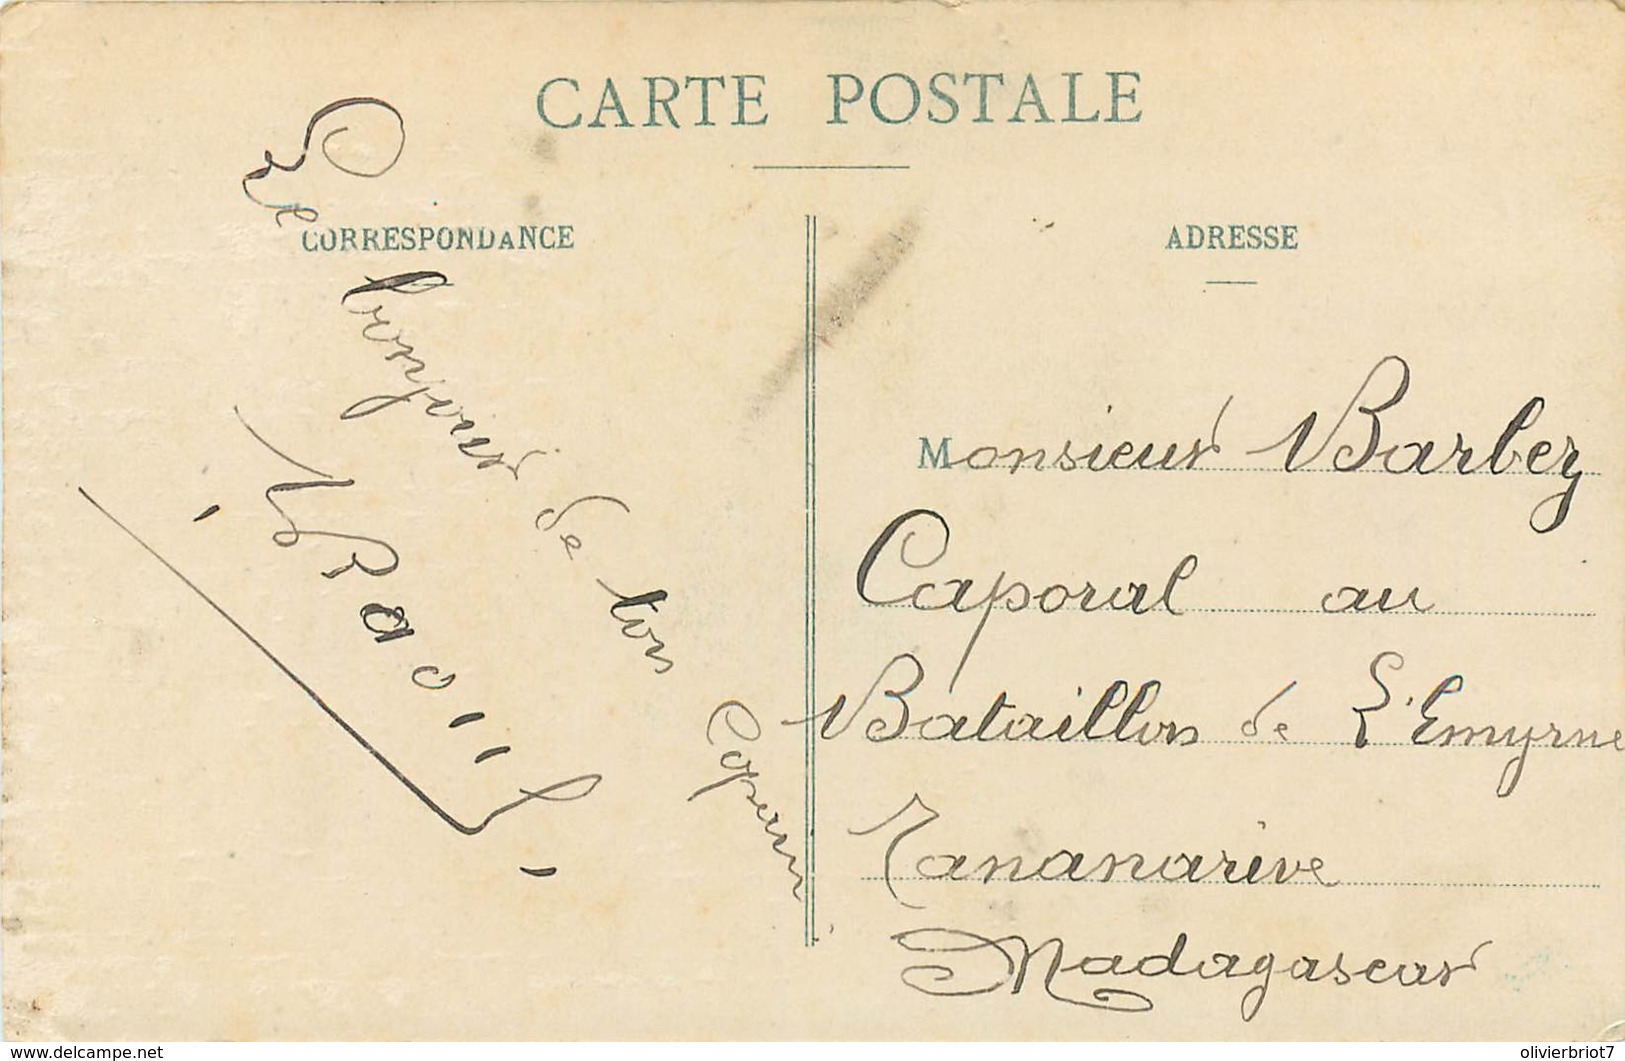 CARTE POSTALE
CORRESPONDANCE
ADRESSE
Le bonjour de ton Copain
Monsieur Barbez
Caporal au
Bataillon de L'Emyrne
Tananarive
Madagascar
delcampe.net
olivierbriot7